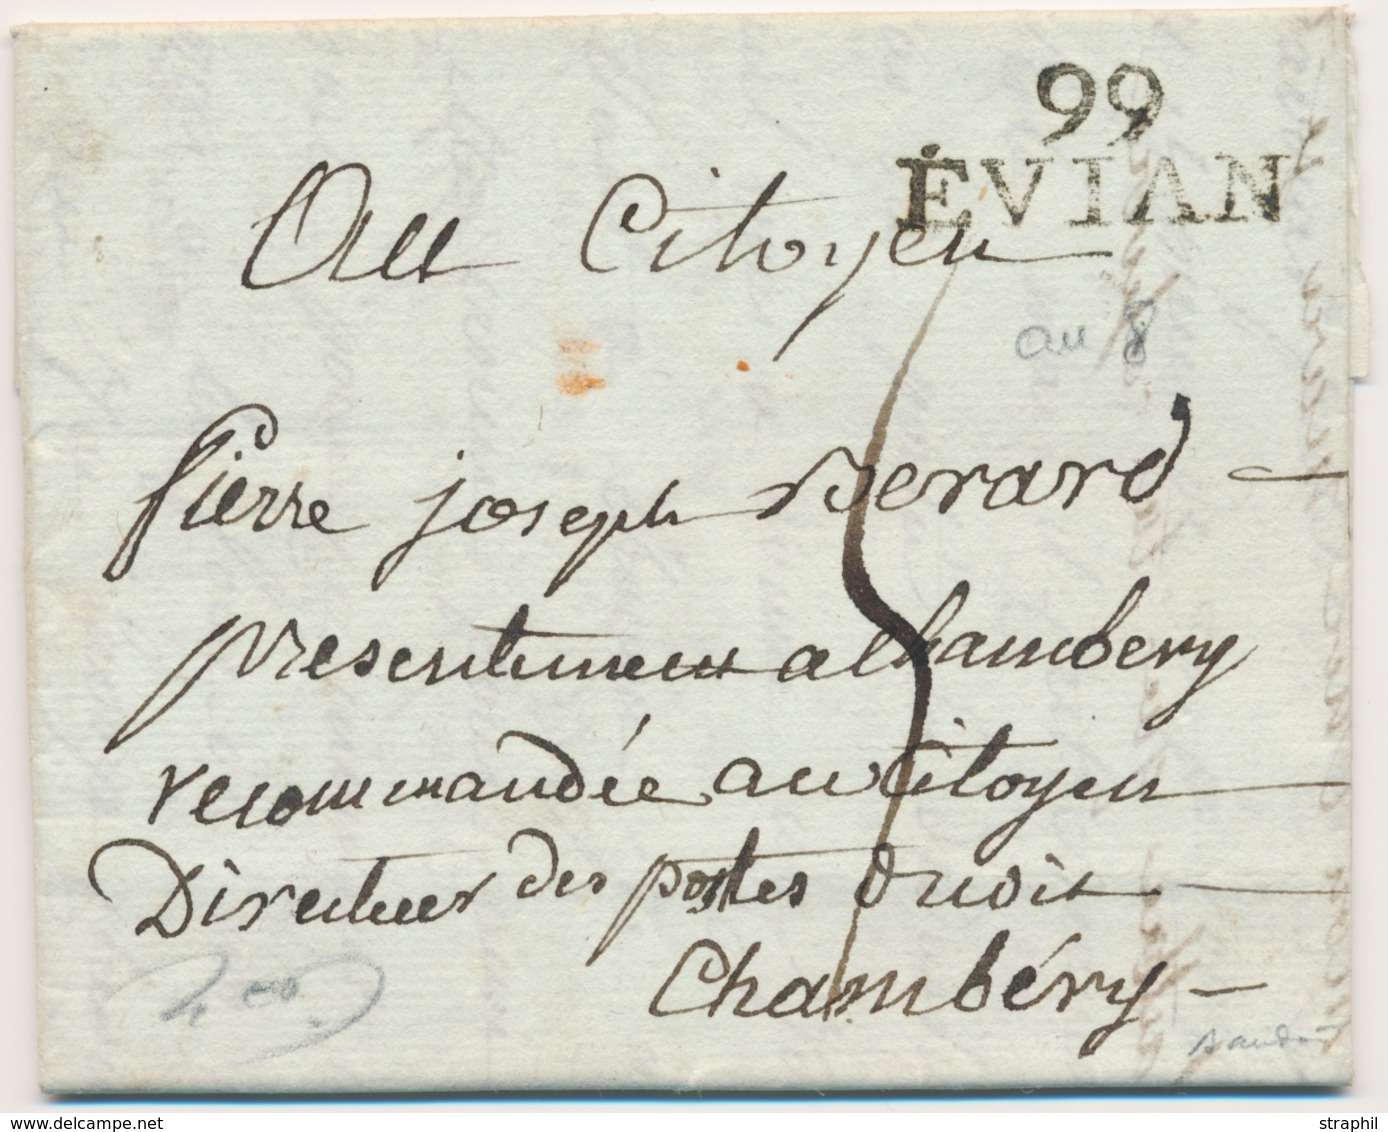 99
ÉVIAN
Au Citoyen
an 8
pierre joseph Berard
presentement a Chambery
recommandée au Citoyen
Directeur des postes dudit
Chambéry
delcampe.net
straphil